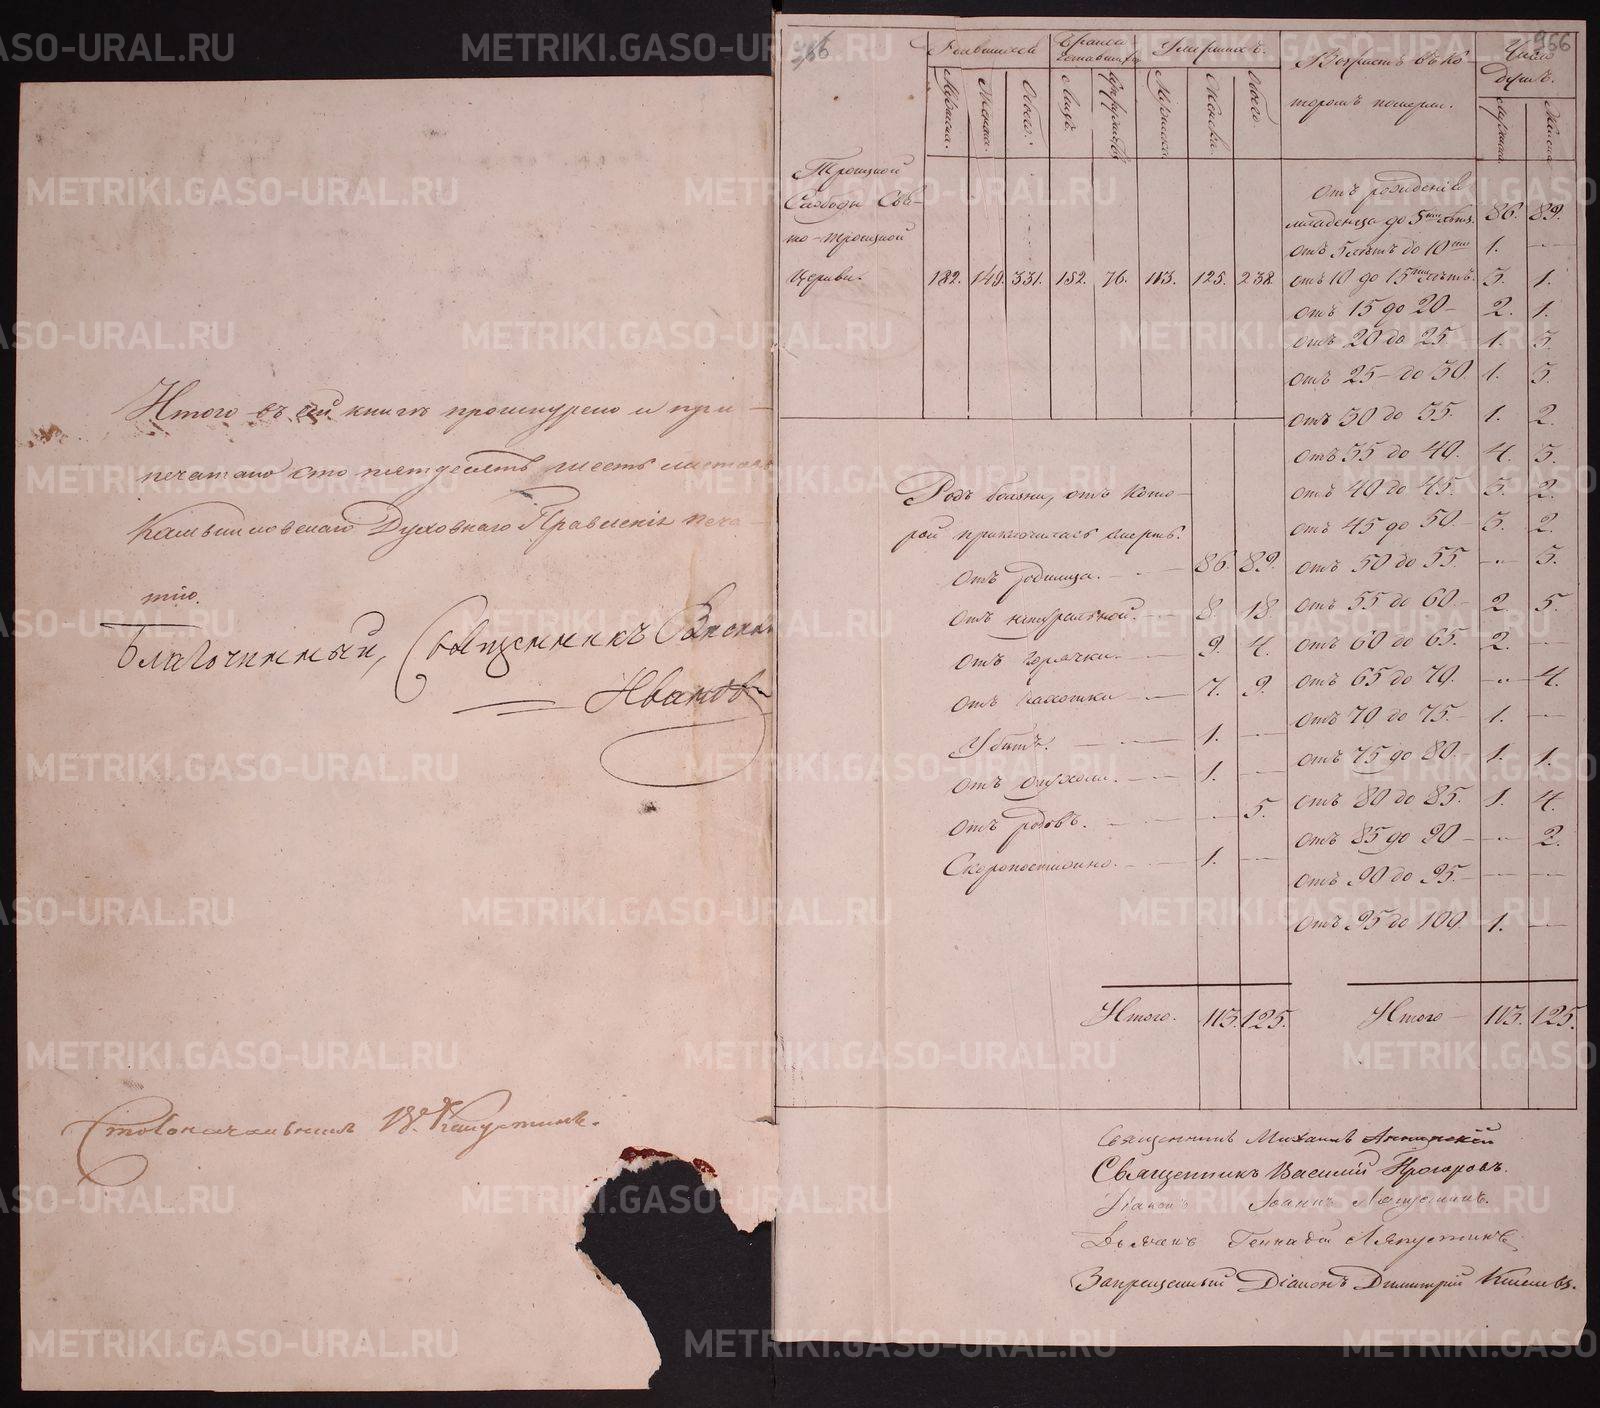 Итого въ сей книгѣ прошнурено и при-
печатано сто пятдесятъ шесть листовъ
Камышловскаго Духовнаго Правленія печа-
тью.
Благочинный, Священникъ
Ивановъ
Столоначальникъ
966
Родившихся
Умершихъ.
Возрастъ въ ко-
Число
душъ.
торомъ померли.
Мужеска. Женска. Обоего. Мужеска. Женска. Обоего.
Троицкой
Слободы Свя-
то-Троицкой
Церкви. 182. 149. 331. 152. 76. 113. 125. 238.
отъ рожденія
младенца до 5ти лѣтъ. 86. 89.
отъ 5 лѣтъ до 10ти 1. —
отъ 10 до 15ти лѣтъ. 3. 1.
отъ 15 до 20 — 2. 1.
отъ 20 до 25 1. 3.
отъ 25 — до 30. 1. 3.
отъ 30 до 35. 1. 2.
отъ 35 до 40. 4. 3.
отъ 40 до 45. 3. 2.
отъ 45 до 50. — 3. 2.
отъ 50 до 55. — 3.
отъ 55 до 60 — 2. 5.
отъ 60 до 65. 2. —
отъ 65 до 70. — 4.
отъ 70 до 75. — 1. —
отъ 75 до 80. — 1. 1.
отъ 80 до 85. 1. 4.
отъ 85 до 90 — — 2.
отъ 90 до 95. — — —
отъ 95 до 100. 1. —
Итого — 113. 125.
Родъ болѣзни, отъ кото-
рой приключилась смерть.
отъ родимца. — 86. 89.
отъ натуральной. — 8. 18.
отъ горячки. — 9. 4.
отъ чахотки — 7. 9.
Убитъ. — 1. —
отъ опухоли. — 1. —
отъ родовъ. — 5.
Скоропостижно. — 1. —
Итого. 113. 125.
Священникъ Михаилъ
Священникъ Василій
Діаконъ Іоаннъ Ляпустинъ.
Дьячекъ Геннадій Ляпустинъ
Запрещенный Діаконъ Димитрій Киселевъ.
METRIKI.GASO-URAL.RU